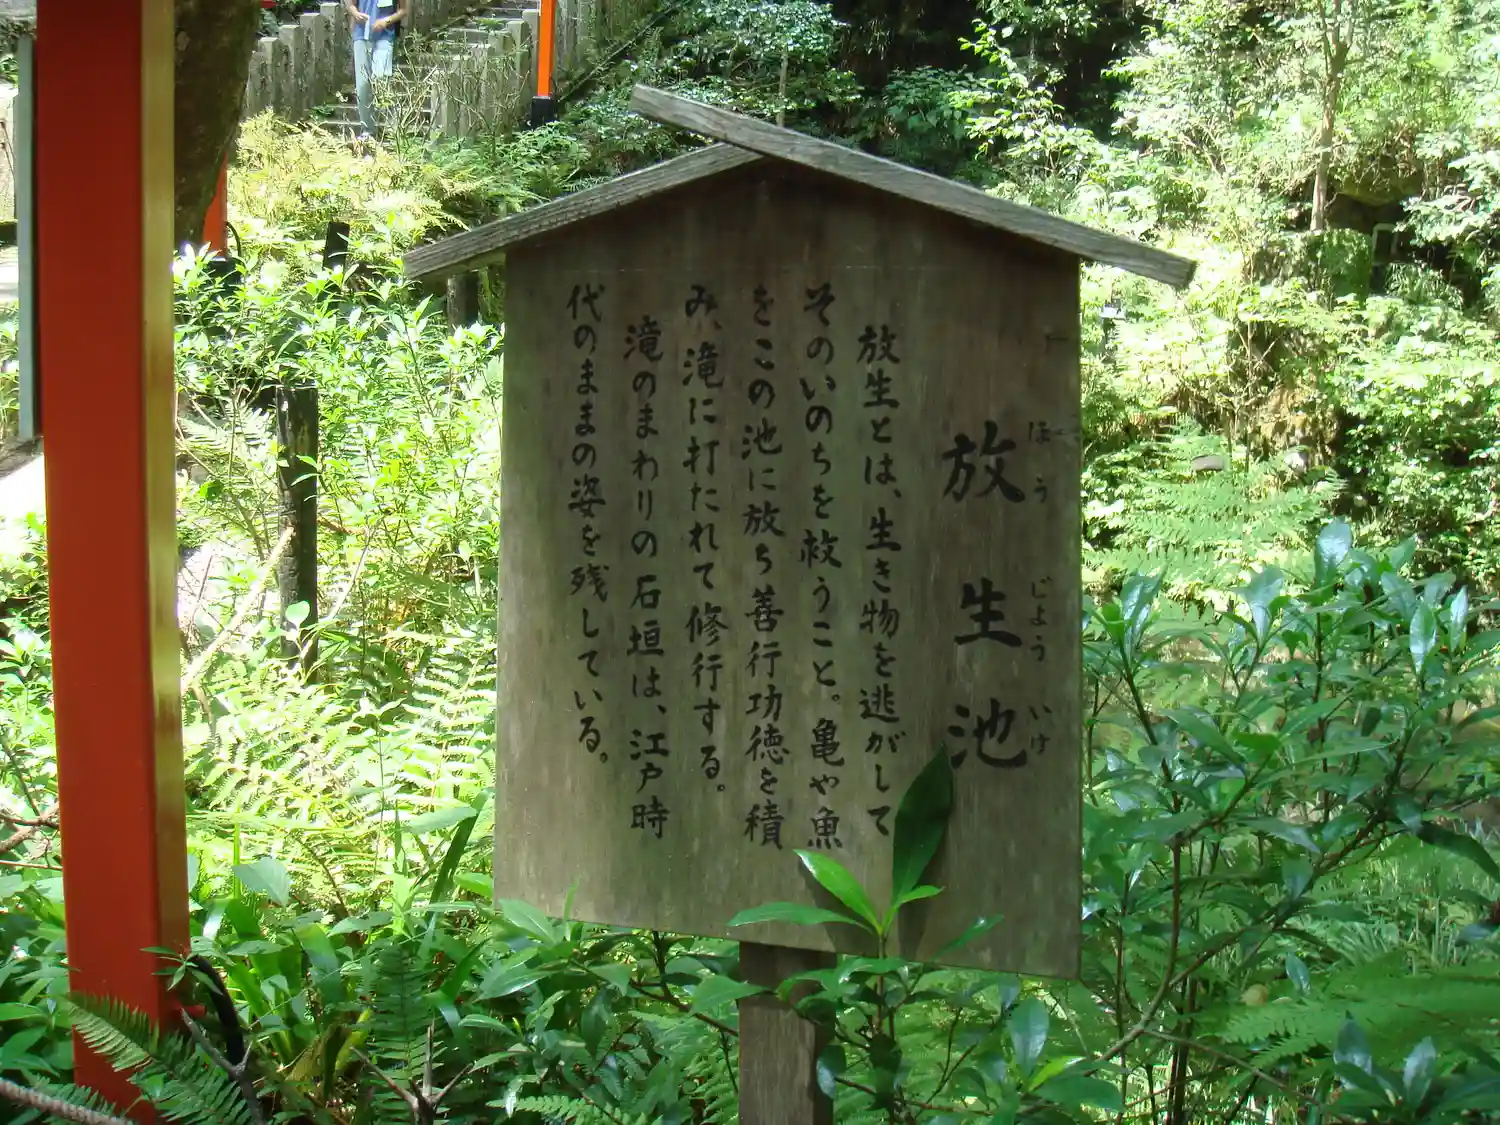 放生池
ほうじょういけ
放生とは、生き物を逃がして
そのいのちを救うこと。亀や魚
をこの池に放ち善行功徳を積
み、滝に打たれて修行する。
滝のまわりの石垣は、江戸時
代のままの姿を残している。